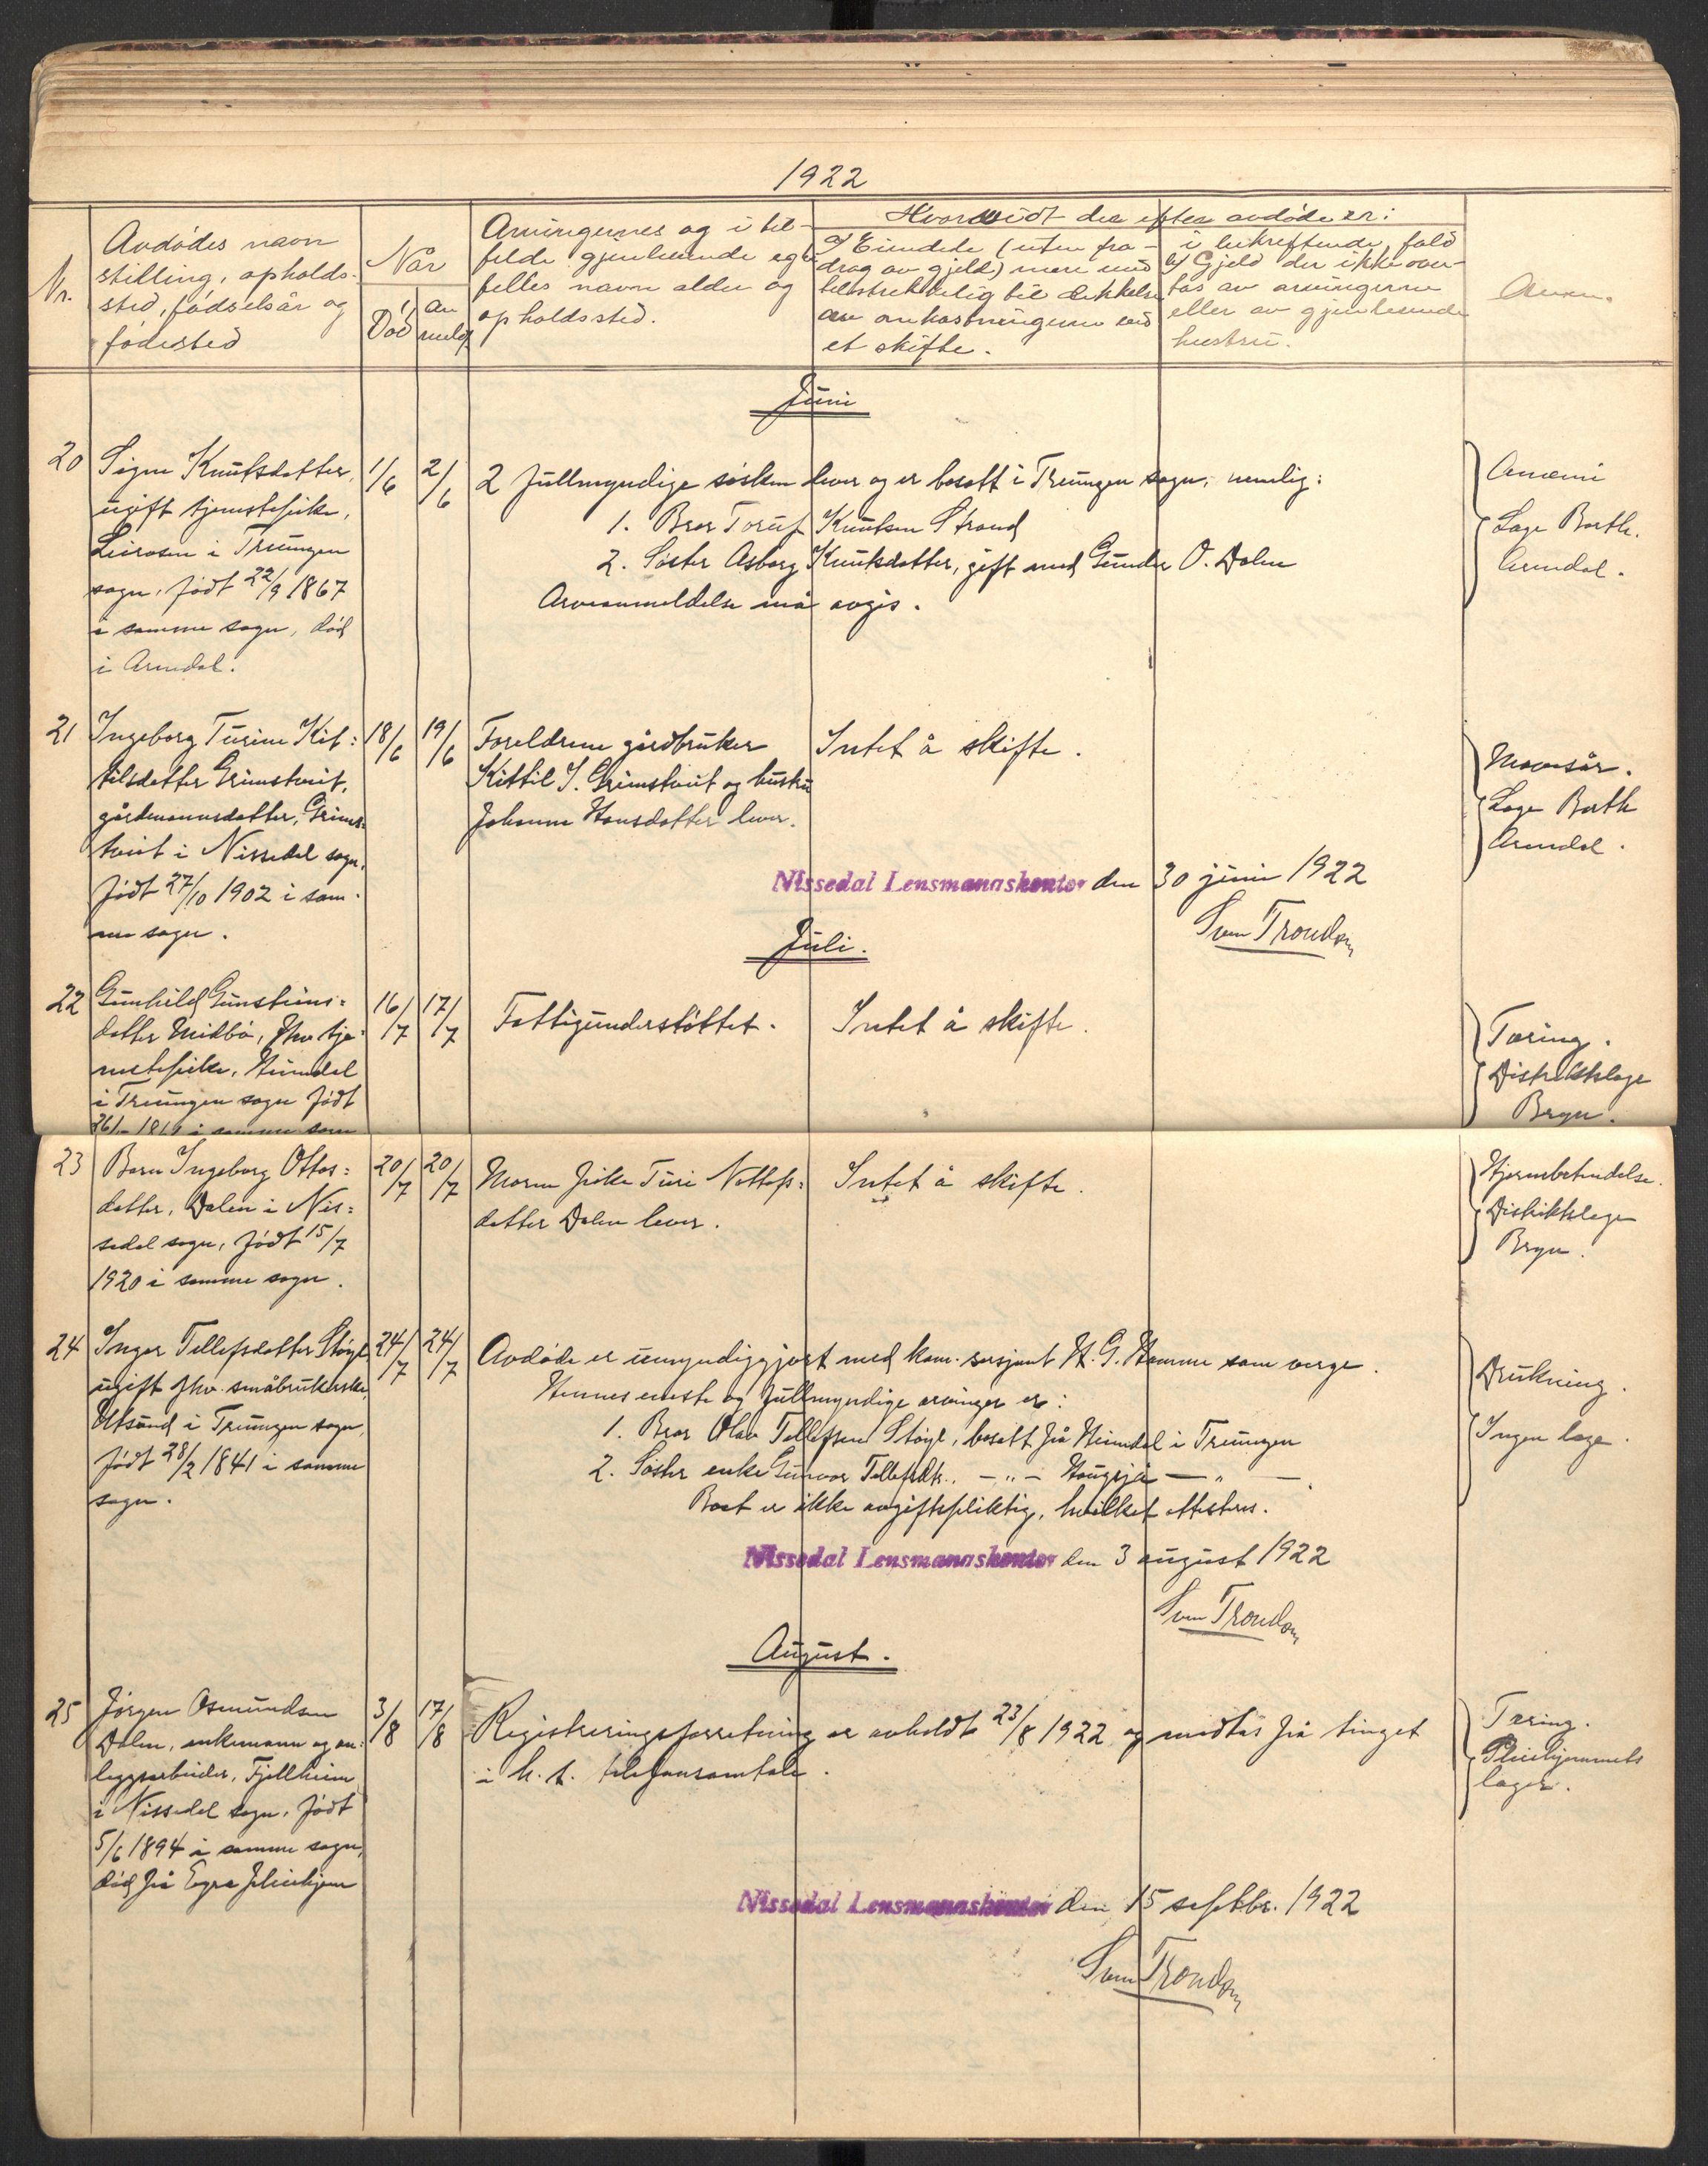 1922
Nr.
Avdødes navn
stilling, opholds-
sted, fødselsår og
fødested
Når
Død
an
meldt
Arvingernes og i til-
felde gjenlevende egte-
felles navn alder og
opholdssted.
Hvorvidt der efter avdøde er:
a) Eiendele (uten fra-
drag av gjeld) mere end
tilstrekkelig til dekkelse
av omkostningerne ved
et skifte.
i bekreftende fald
b) Gjeld der ikke over-
tas av arvingerne
eller av gjenlevende
hustru.
Anm.
Juni
20
Signe Knutsdatter,
ugift tjenestepike,
i Treungen
sogn, født 22/9 1867
i samme sogn, død
i Arendal.
1/6
2/6
2 fullmyndige søsken lever og er bosatt i Treungen sogn, nemlig:
1. Bror Toruf Knutsen Strand
2. Søster Asborg Knutsdatter, gift med Gunder O. Dalen
Arveanmeldelse må avgis.
Anæmi
Læge Barth.
Arendal.
21
Ingeborg Turine Kit=
tilsdatter Grimstveit,
gårdmannsdatter, Grims=
tveit i Nissedal sogn,
født 27/10 1902 i sam-
me sogn.
18/6
19/6
Foreldrene gårdbruker
Kittil J. Grimstveit og hustru
Johanne Hansdatter lever.
Intet å skifte.
Mavesår.
Læge Barth
Arendal.
Nissedal Lensmannskontor den 30 juni 1922
Sven Trondsen
Juli.
22
Gunhild Gunsteins=
datter Midbø, fhv. tje=
nestepike, Heimdal
i Treungen sogn født
i samme sogn
16/7
17/7
Fattigunderstøttet.
Intet å skifte.
Tæring.
Distriktslæge
Bryn.
23
Barn Ingeborg Ottos=
datter, Dalen i Nis=
sedal sogn, født 15/7
1920 i samme sogn.
20/7
20/7
Moren pike Turi Nottofs=
datter Dalen lever.
Intet å skifte.
Hjernebetendelse.
Distriktslæge
Bryn.
24
Inger Tellefsdatter Støyl,
ugift fhv. småbrukerske,
Utsund i Treungen sogn,
født 28/2 1841 i samme
sogn.
24/7
24/7
Avdøde er umyndiggjort med kom. sersjant H. G. Hamme som verge.
Hennes eneste og fullmyndige arvinger er:
1. Bror Olav Tellefsen Støyl, bosatt på Heimdal i Treungen
2. Søster enke Gunvor Tellefsdtr. — " — Haugsjå — " —
Boet er ikke avgiftspliktig, hvilket attesteres.
Drukning.
Ingen læge.
Nissedal Lensmannskontor den 3 august 1922
Sven Trondsen
August.
25
Jørgen Osmundsen
Dalen, enkemann og an=
leggsarbeider, Fjellheim
i Nissedal sogn, født
5/6 1894 i samme sogn,
død på Eyra pleiehjem
3/8
17/8
Registreringsforretning er avholdt 23/8 1922 og mottas på tinget
i h. t. telefonsamtale.
Tæring.
Pleiehjemmets
læger.
Nissedal Lensmannskontor den 15 septbr. 1922
Sven Trondsen